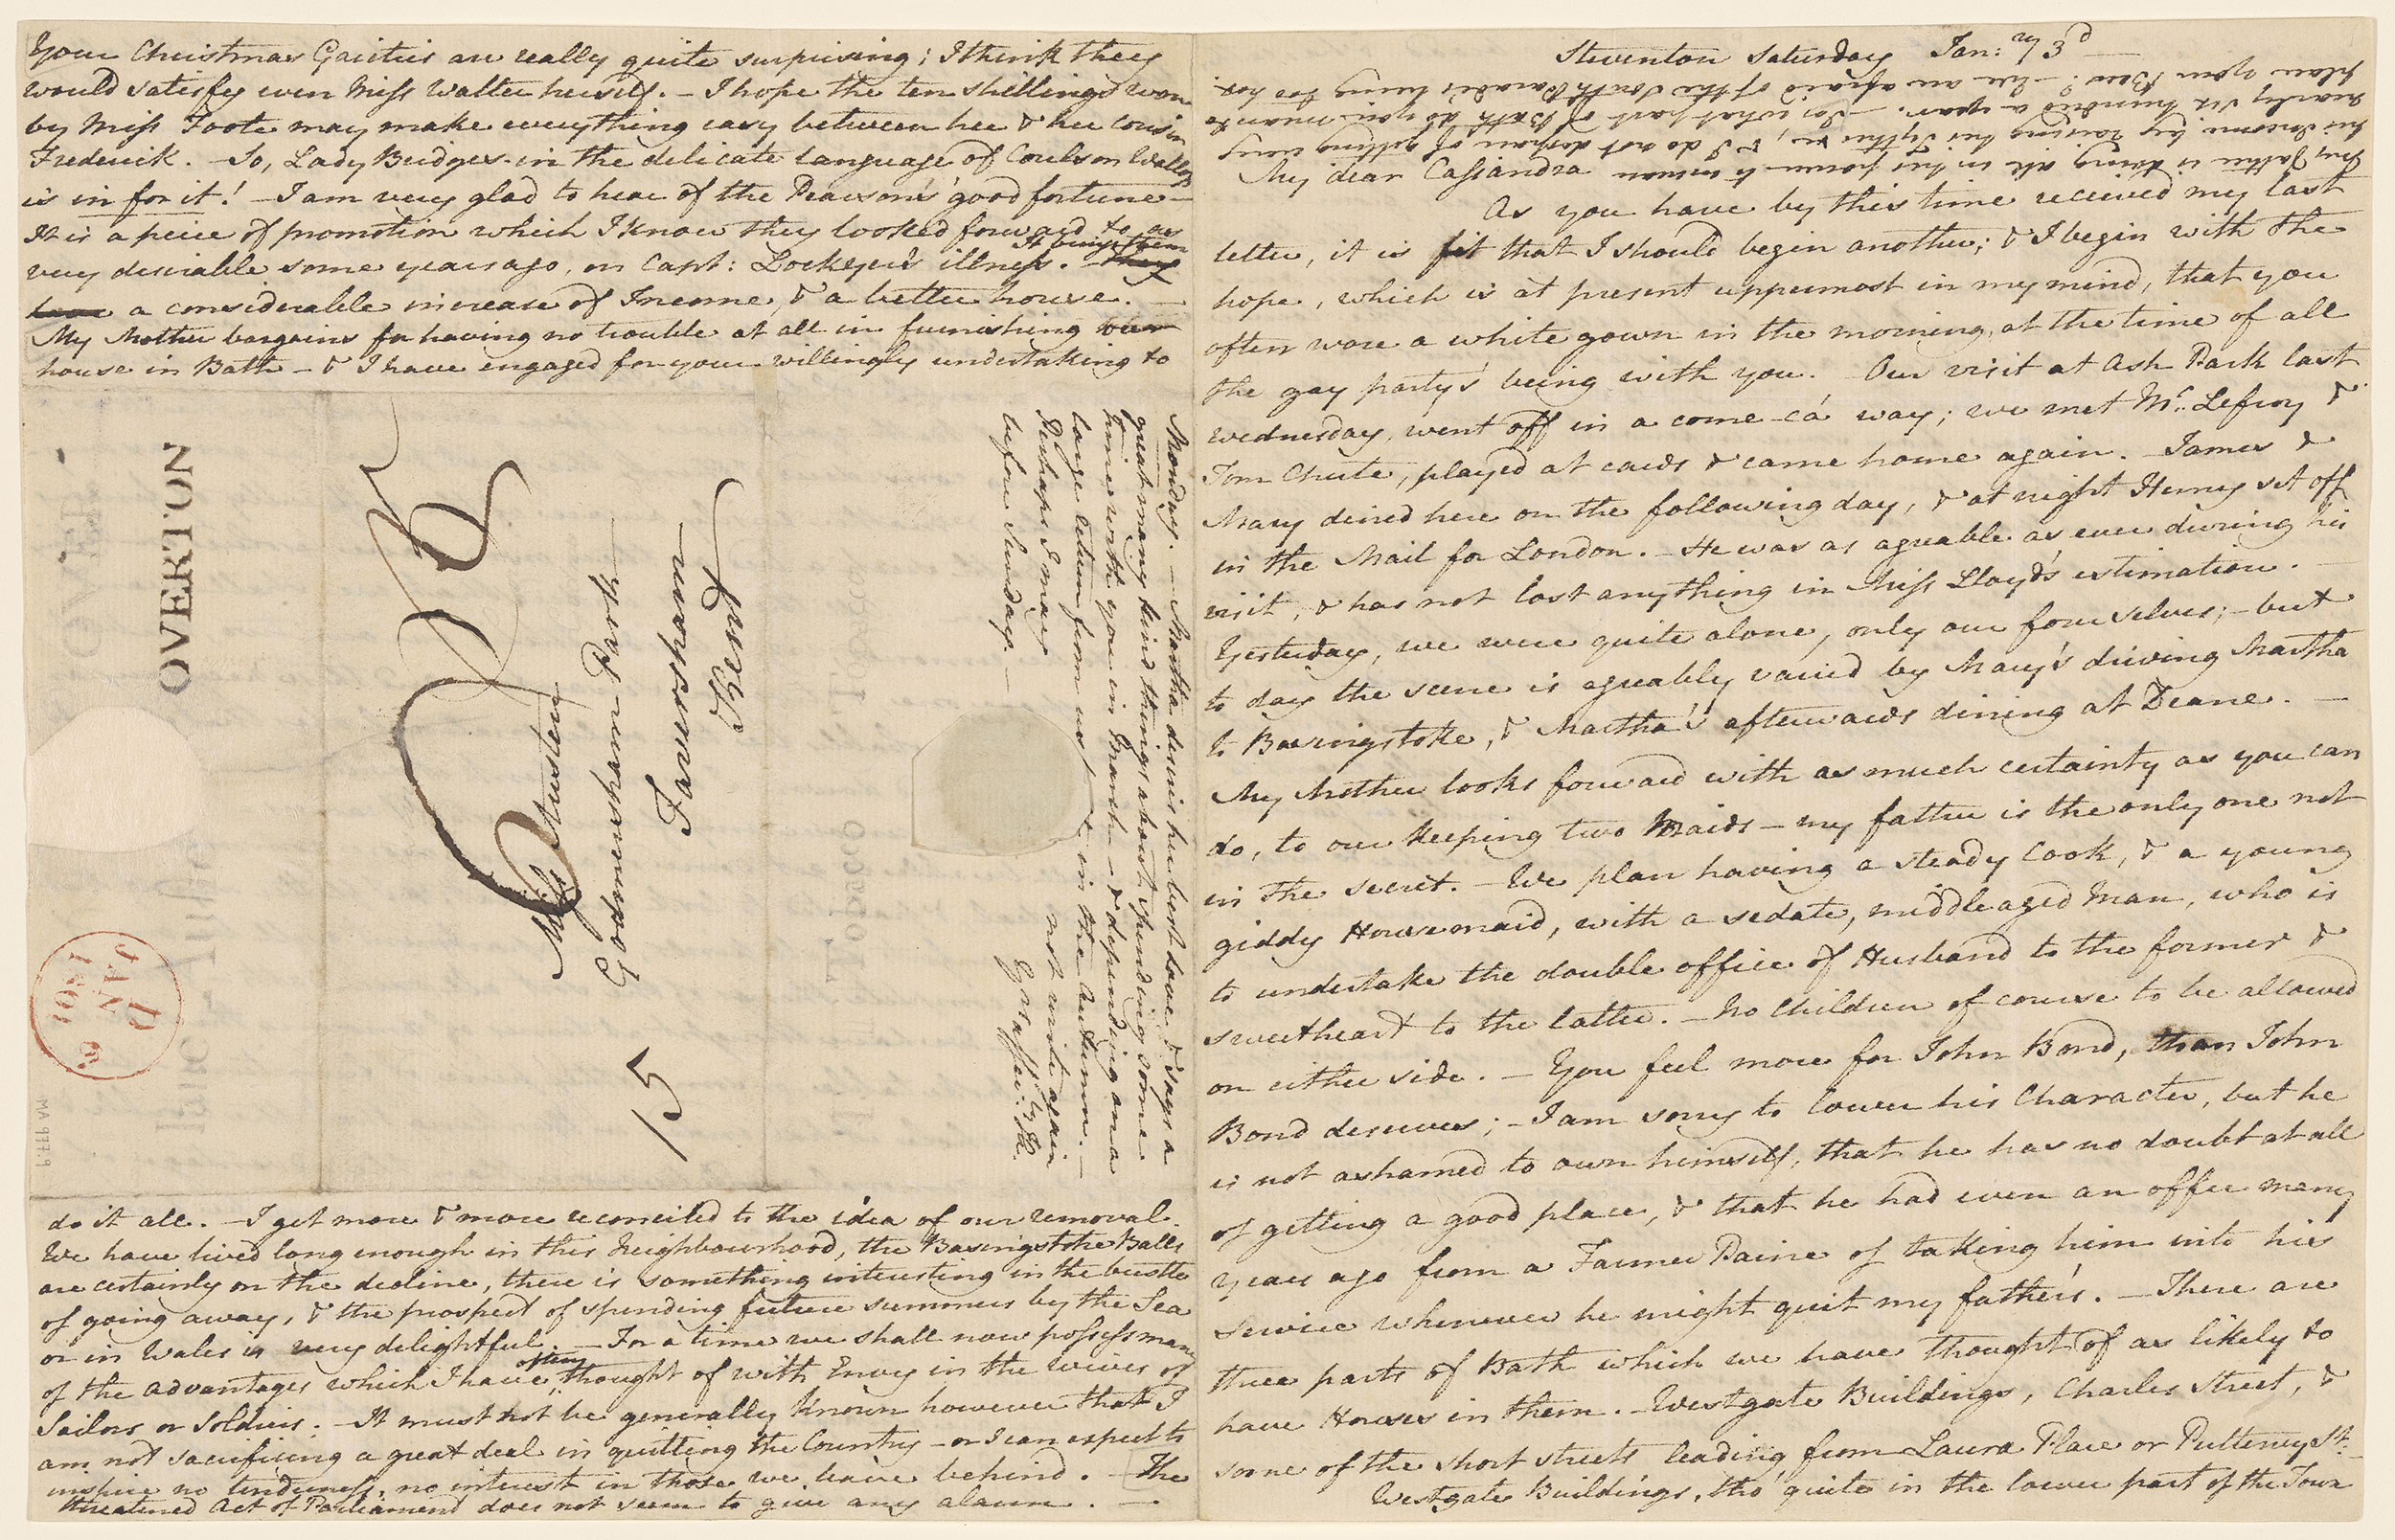 Your Christmas Gaieties are really quite surprising; I think they
would satisfy even Miss Walter herself. – I hope the ten shillings won
by Miss Foote may make everything easy between her & her cousin
Frederick. – So, Lady Bridges – in the delicate language of Coulson Wallop
is in for it! – I am very glad to hear of the Pearsons' good fortune –
It is a peice of promotion which I know they looked forward to as
very desirable some years ago, on Capt: Lockyer's illness. – It brings them
a considerable increase of Income, & a better house. –
My Mother bargains for having no trouble at all in furnishing our
house in Bath – & I have engaged for your willingly undertaking to
OVERTON
Miss Austen
Godmersham Park
Faversham
Kent
15
D
JAN
1801
MA 977.9
Monday. – Martha desires her best Love, & says a
great many kind things about spending some
time with you in March – & depending on a
large return from us in the Autumn. –
Perhaps I may not write again
before Sunday. –
Yrs affec:ly JA.
do it all. – I get more & more reconciled to the idea of our removal.
We have lived long enough in this Neighbourhood, the Basingstoke Balls
are certainly on the decline, there is something interesting in the bustle
of going away, & the prospect of spending future summers by the Sea
or in Wales is very delightful. – For a time we shall now possess many
of the advantages which I have often thought of with Envy in the wives of
Sailors or Soldiers. – It must not be generally known however that I
am not sacrificing a great deal in quitting the Country – or I can expect to
inspire no tenderness, no interest in those we leave behind. – The
threatened Act of Parliament does not seem to give any alarm. –
Steventon Saturday Jan:ry 3d –
My father is doing all in his power to increase
his Income by raising his Tythes &c, & I do not despair of getting very
nearly six hundred a year. – In what part of Bath do you mean to
place your Bees? – We are afraid of the South Parade's being too hot.
My dear Cassandra
As you have by this time received my last
letter, it is fit that I should begin another; & I begin with the
hope, which is at present uppermost in my mind, that you
often wore a white gown in the morning, at the time of all
the gay party's being with you. Our visit at Ash Park last
Wednesday, went off in a come-cá way; we met Mr. Lefroy &
Tom Chute, played at cards & came home again. – James &
Mary dined here on the following day, & at night Henry set off
in the Mail for London. – He was as agreable as ever during his
visit, & has not lost anything in Miss Lloyd's estimation. –
Yesterday, we were quite alone, only our four selves; – but
to day the scene is agreably varied by Mary's driving Martha
to Basingstoke, & Martha's afterwards dining at Deane. –
My Mother looks forward with as much certainty as you can
do, to our keeping two Maids – my father is the only one not
in the secret. – We plan having a steady Cook, & a young
giddy Housemaid, with a sedate, middle aged Man, who is
to undertake the double office of Husband to the former &
sweetheart to the latter. – No Children of course to be allowed
on either side. – You feel more for John Bond, than John
Bond deserves; – I am sorry to lower his Character, but he
is not ashamed to own himself, that he has no doubt at all
of getting a good place, & that he had even an offer many
years ago from a Farmer Paine of taking him into his
Service whenever he might quit my father's. – There are
three parts of Bath which we have thought of as likely to
have Houses in them. – Westgate Buildings, Charles Street, &
some of the short streets leading from Laura Place or Pulteney St. –
Westgate Buildings, tho' quite in the lower part of the Town